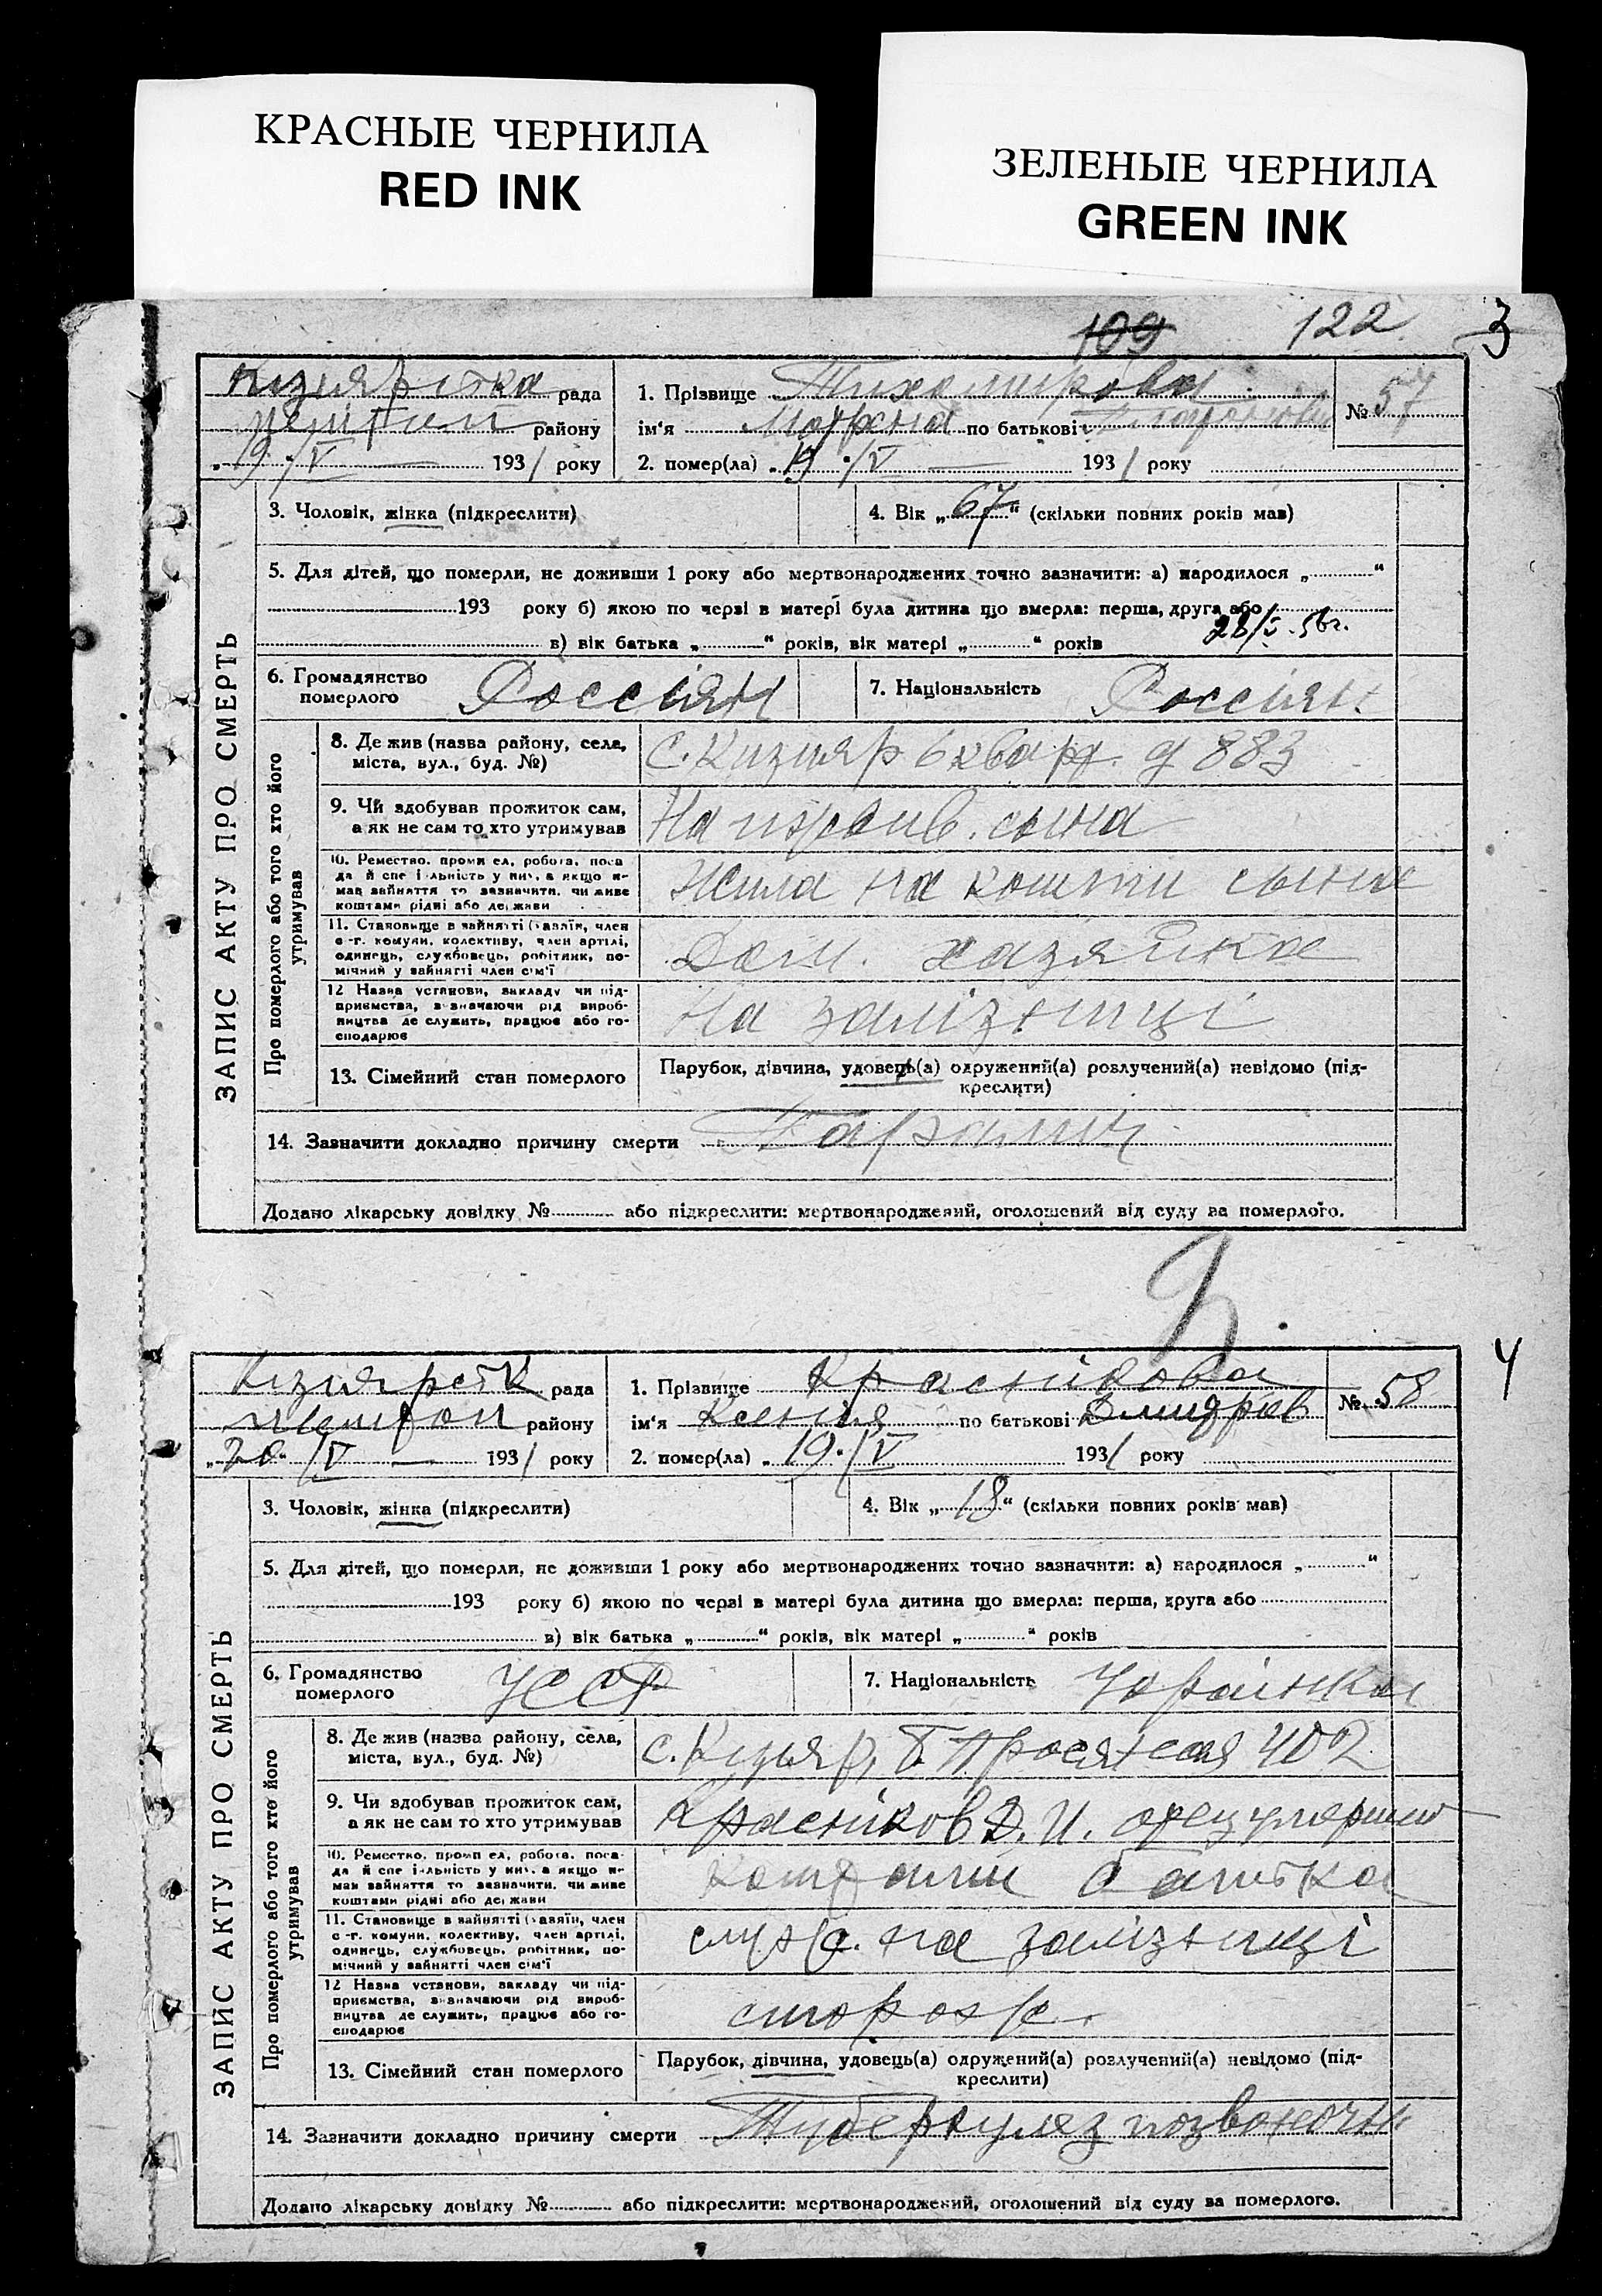 КРАСНЫЕ ЧЕРНИЛА
RED INK
ЗЕЛЕНЫЕ ЧЕРНИЛА
GREEN INK
109 122 3
рада
району
„19“/V 1931 року
1. Прізвище Тихомирова
ім'я Мотрена по батькові
2. помер(ла) „19“/V 1931 року
№ 57
ЗАПИС АКТУ ПРО СМЕРТЬ
3. Чоловік, жінка (підкреслити)
4. Вік „67“ (скільки повних років мав)
5. Для дітей, що померли, не доживши 1 року або мертвонароджених точно зазначити: а) народилося „ “
193 року б) якою по черзі в матері була дитина що вмерла: перша, друга або
в) вік батька „ “ років, вік матері „ “ років
28/V.56г.
6. Громадянство померлого Россіян
7. Національність Россіян
Про померлого або того хто його утримував
8. Де жив (назва району, села,
міста, вул., буд. №)
С. Кизияр 6 кварт. д 883
9. Чи здобував прожиток сам,
а як не сам то хто утримував
На ижхив. сына
10. Ремество, промисел, робота, поса-
да й спеціяльність у них, а якщо не
мав зайняття то зазначити, чи живе
коштами рідні або держави
Жила на кошти сына
11. Становище в зайнятті (хазяїн, член
с.-г. комуни, колективу, член артілі,
одинець, службовець, робітник, по-
мічний у зайнятті член сім'ї
Дом. хазяйка
12 Назва установи, закладу чи під-
приємства, зазначаючи рід вироб-
ництва де служить, працює або го-
сподарює
На залізниці
13. Сімейний стан померлого
Парубок, дівчина, удовець(а) одружений(а) розлучений(а) невідомо (під-
креслити)
14. Зазначити докладно причину смерти Параліч
Додано лікарську довідку № або підкреслити: мертвонароджений, оголошений від суду за померлого.
4
рада
району
„20“/V 1931 року
1. Прізвище Краснікова
ім'я Ксенія по батькові Дмидрів
2. помер(ла) „19“/V 1931 року
№ 58
ЗАПИС АКТУ ПРО СМЕРТЬ
3. Чоловік, жінка (підкреслити)
4. Вік „18“ (скільки повних років мав)
5. Для дітей, що померли, не доживши 1 року або мертвонароджених точно зазначити: а) народилося „ “
193 року б) якою по черзі в матері була дитина що вмерла: перша, друга або
в) вік батька „ “ років, вік матері „ “ років
6. Громадянство померлого УССР
7. Національність Украінка
Про померлого або того хто його утримував
8. Де жив (назва району, села,
міста, вул., буд. №)
с. Кизыяр, 402
9. Чи здобував прожиток сам,
а як не сам то хто утримував
Красніков Д. И. отец умершей
10. Ремество, промисел, робота, поса-
да й спеціяльність у них, а якщо не
мав зайняття то зазначити, чи живе
коштами рідні або держави
Коштами батька
11. Становище в зайнятті (хазяїн, член
с.-г. комуни, колективу, член артілі,
одинець, службовець, робітник, по-
мічний у зайнятті член сім'ї
служ. на залізниці
12 Назва установи, закладу чи під-
приємства, зазначаючи рід вироб-
ництва де служить, працює або го-
сподарює
сторож.
13. Сімейний стан померлого
Парубок, дівчина, удовець(а) одружений(а) розлучений(а) невідомо (під-
креслити)
14. Зазначити докладно причину смерти Туберкулез позвоночн
Додано лікарську довідку № або підкреслити: мертвонароджений, оголошений від суду за померлого.